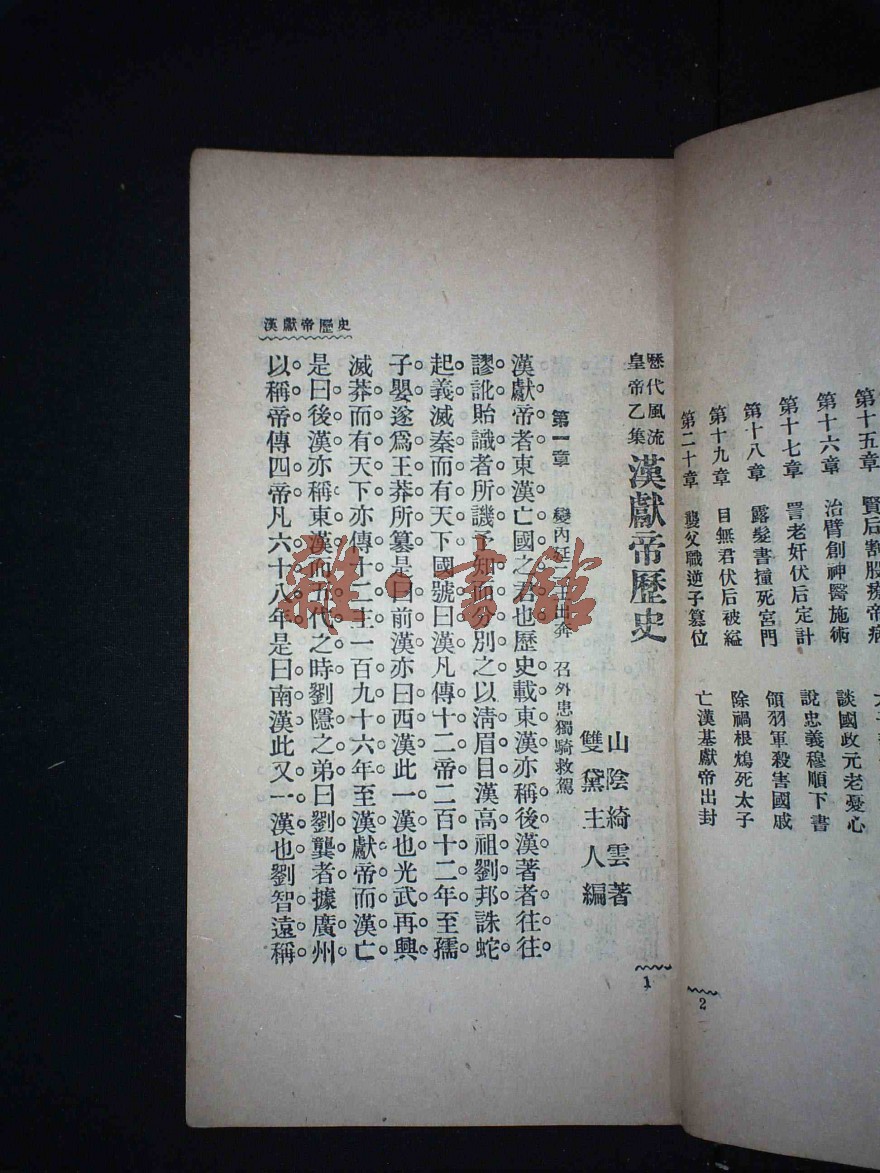 第十五章　賢后割股療帝病
第十六章　治臂創神醫施術　談國政元老憂心
第十七章　詈老奸伏后定計　說忠義穆順下書
第十八章　露髮書撞死宮門　領羽軍殺害國戚
第十九章　目無君伏后被縊　除禍根鴆死太子
第二十章　襲父職逆子篡位　亡漢基獻帝出封
2
歷代風流
皇帝乙集
漢獻帝歷史
1
山陰綺雲著
雙黛主人編
第一章　變內廷二王出奔　召外患獨騎救駕
漢獻帝者東漢亡國之君也歷史載東漢亦稱後漢著者往往
謬訛貽識者所譏予知而分別之以清眉目漢高祖劉邦誅蛇
起義滅秦而有天下國號曰漢凡傳十二帝二百十二年至孺
子嬰遂爲王莽所篡是曰前漢亦曰西漢此一漢也光武再興
滅莽而有天下亦傳十二主一百九十六年至漢獻帝而漢亡
是曰後漢亦稱東漢而五代之時劉隱之弟曰劉龑者據廣州
以稱帝傳四帝凡六十八年是曰南漢此又一漢也劉智遠稱
漢獻帝歷史
雜·書館